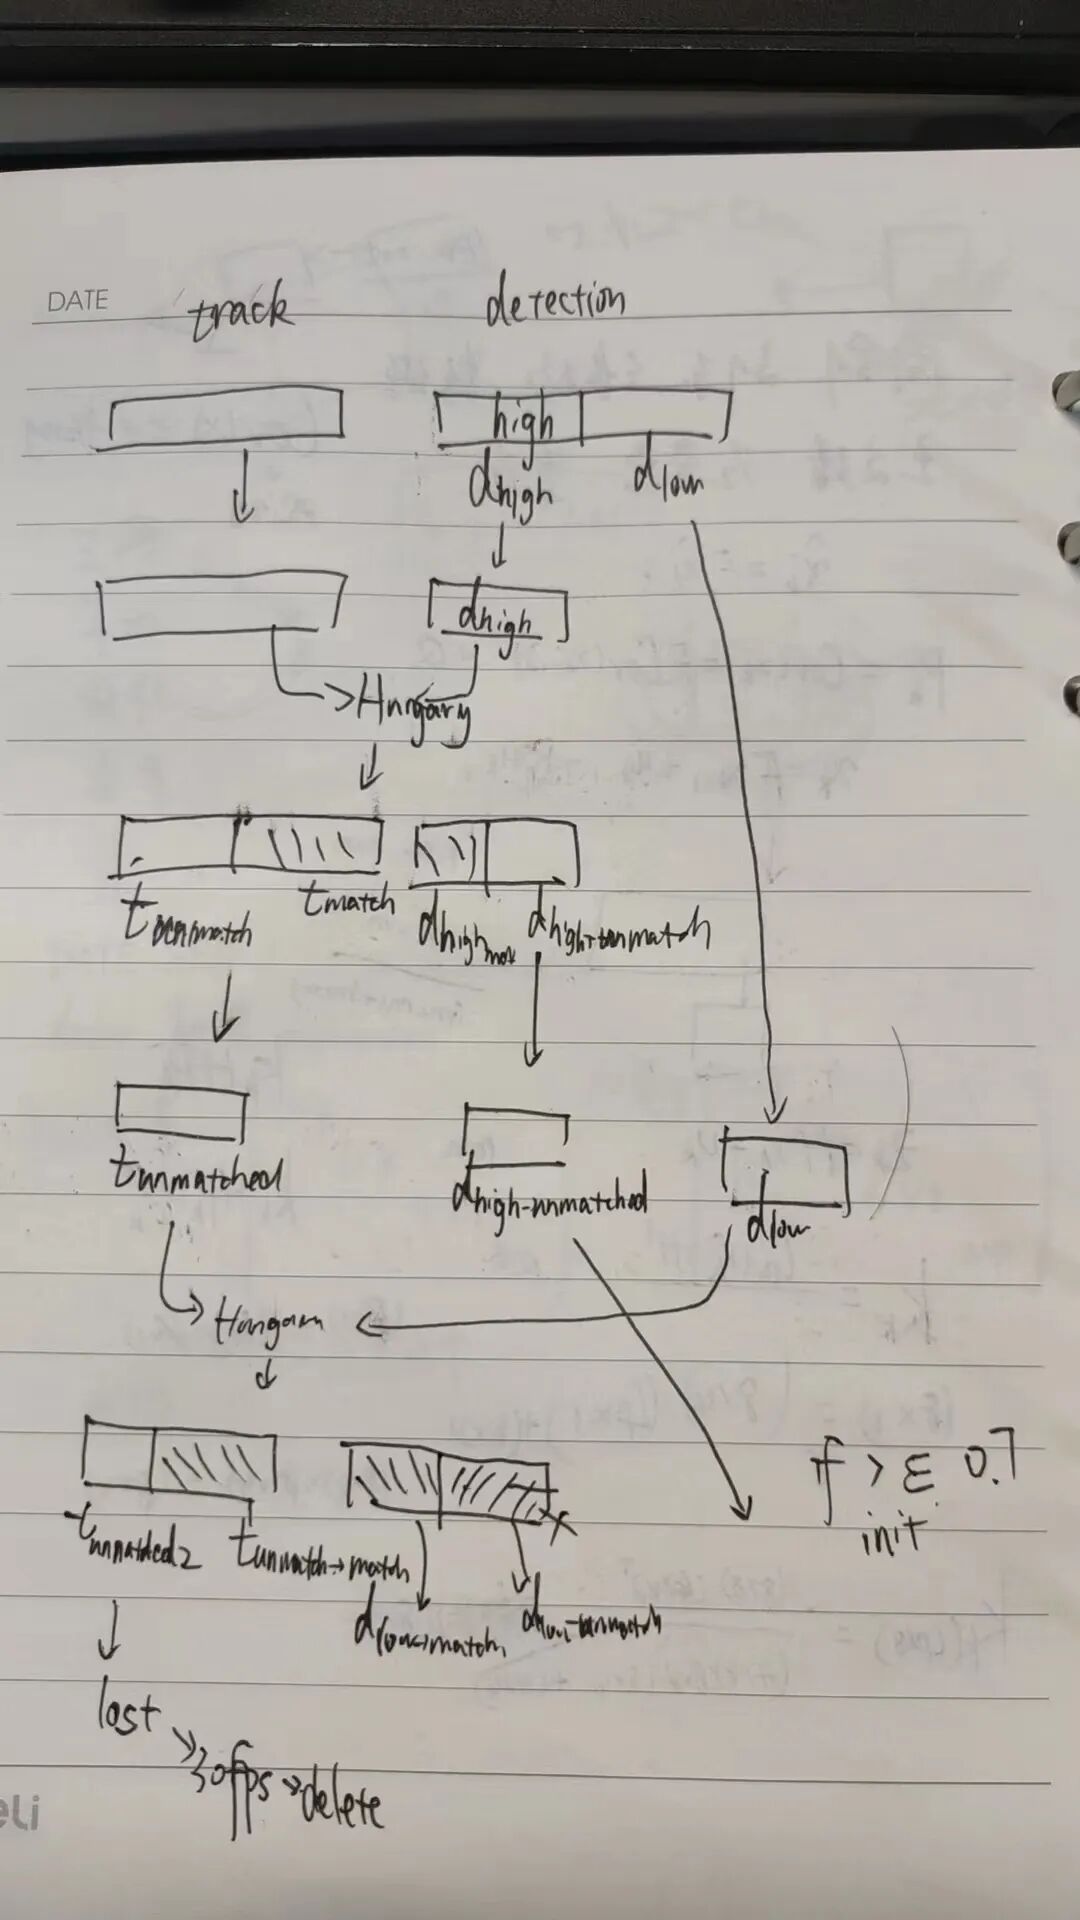 DATE track detection
high
dhigh dlow
dhigh
Hungary
tunmatch tmatch dhigh dhigh-unmatch
tunmatched dhigh-unmatched dlow
Hungary
if > ε 0.7
init
tunmatched2 tunmatch→match
dlow→match dlow-unmatch
lost
30fps → delete
eli